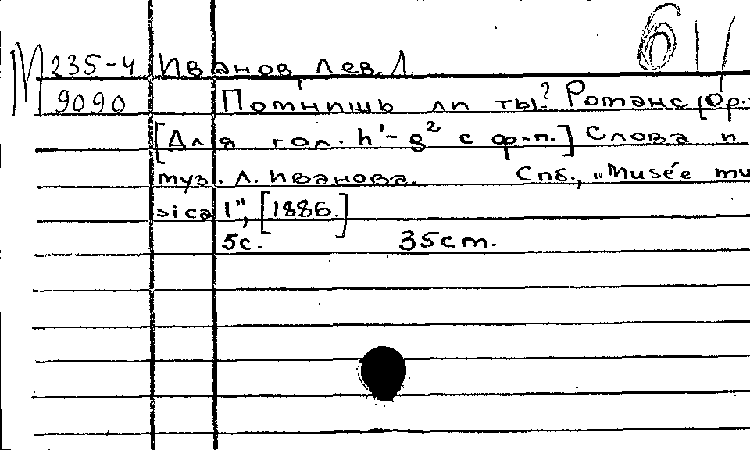 611
М 235-4 Иванов Лев. Л
9090 Помнишь ли ты? Романс (Ор.
[Для гол. h'-g² с ф.п.] Слова и
муз. Л. Иванова. Спб., "Musée mu
sical", [1886.]
5с. 35cm.